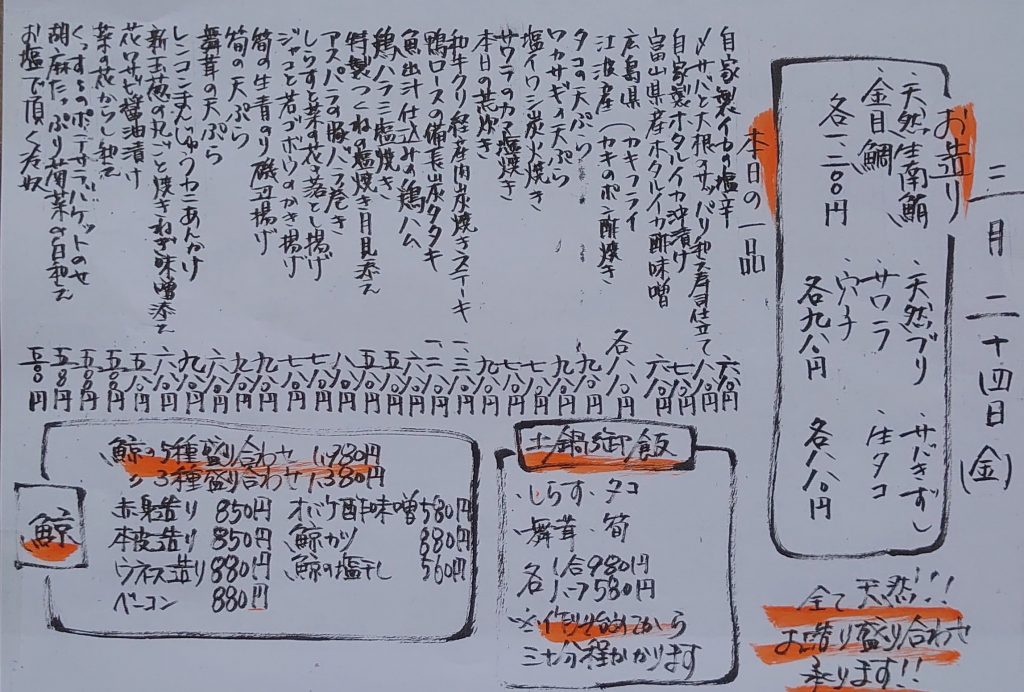 三月二十四日(金)
お造り
・天然生南鮪
・金目鯛
各一、二〇〇円
・天然ブリ
・サワラ
・穴子
各九八〇円
・サバきずし
・生タコ
各八八〇円
全て天然!!!
お造り盛り合わせ
承ります!!
本日の一品
自家製イカの塩辛 六八〇円
〆サバと大根のサッパリ和え寿司仕立て 八八〇円
自家製ホタルイカ沖漬け 七八〇円
富山県産ホタルイカ酢味噌 六八〇円
広島県 (カキフライ
江波産 (カキのポン酢焼き 各八八〇円
タコの天ぷら 九八〇円
ワカサギの天ぷら 六八〇円
塩イワシ炭火焼き 六八〇円
サワラのカマ塩焼き 七八〇円
本日の煮炊き 九八〇円
和牛クリ経産肉炭焼きステーキ 一、三八〇円
鴨ロースの備長炭タタキ 一、二八〇円
魚出汁仕込みの鶏ハム 六八〇円
鶏ハラミ塩焼き 五八〇円
特製つくねの塩焼き月見添え 五八〇円
アスパラの豚バラ巻き 八八〇円
しらすと菜の花き落とし揚げ 七八〇円
ジャコと若ゴボウのかき揚げ 七八〇円
筍の生青のり磯辺揚げ 九八〇円
筍の天ぷら 九八〇円
舞茸の天ぷら 六八〇円
レンコンまんじゅうカニあんかけ 九八〇円
新玉葱の丸ごと焼きねぎ味噌添え 六八〇円
花わさび醤油漬け 五八〇円
菜の花からし和え 五八〇円
ポテサラバケットのせ 五八〇円
胡麻たっぷり菊菜の白和え 五八〇円
お塩で頂く冷奴 五〇〇円
土鍋御飯
・しらす・タコ
・舞茸・筍
各 1合980円
ハーフ580円
※作り始めてから
三十分程かかります
鯨
鯨の5種盛り合わせ 1,980円
〃 3種盛り合わせ 1,380円
赤身造り 850円 オバケ酢味噌 580円
本皮造り 850円 鯨カツ 880円
ウネス造り 880円 鯨の塩干し 560円
ベーコン 880円